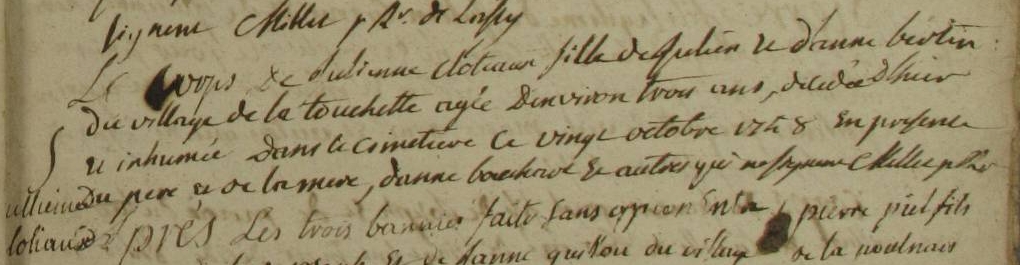 signent Millet p Rr. de Loisly
Le Corps de Julienne Clolieaux fille de Julien et d'anne bertin
du village de la touchette agée denviron trois ans, decedée d'hier
et inhumée dans le cimetiere ce vingt octobre 1748 En presence
du pere et de la mere, d'anne bouchard et autres qui ne signent Millet p Rr
Julienne
Cloliaux
Aprés Les trois bannies faites sans opposion Entre pierre piel fils
et de Janne guillou du village de la noulnais